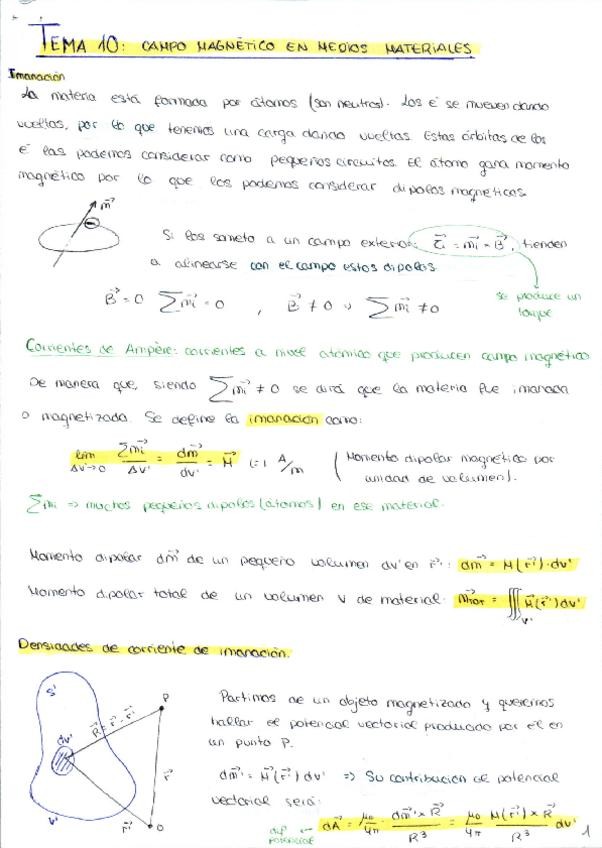 TEMA 10: CAMPO MAGNÉTICO EN MEDIOS MATERIALES
Imanación
La materia está formada por átomos (son neutros). Los e⁻ se mueven dando
vueltas, por lo que tenemos una carga dando vueltas. Estas órbitas de los
e⁻ las podemos considerar como pequeños circuitos. El átomo gana momento
magnético por lo que los podemos considerar dipolos magnéticos.
m⃗
Si los someto a un campo exterior: τ⃗i = m⃗i × B⃗, tienden
a alinearse con el campo estos dipolos.
se produce un
torque
B⃗ = 0 ∑m⃗i = 0 , B⃗ ≠ 0 ∑m⃗i ≠ 0
Corrientes de Ampère: corrientes a nivel atómico que producen campo magnético
De manera que, siendo ∑m⃗i ≠ 0 se dirá que la materia fue imanada
o magnetizada. Se define la imanación como:
lim Δv'→0 ∑m⃗i / Δv' = dm⃗ / dv' = M⃗ [=] A/m (Momento dipolar magnético por
unidad de volumen).
∑m⃗i => muchos pequeños dipolos (átomos) en ese material.
Momento dipolar dm⃗ de un pequeño volumen dv' en r⃗': dm⃗ = M⃗(r⃗')·dv'
Momento dipolar total de un volumen V de material: m⃗TOT = ∭V' M⃗(r⃗') dv'
Densidades de corriente de imanación.
S'
dv'
R⃗ = r⃗ - r⃗'
P
r⃗
V'
r⃗'
O
Partimos de un objeto magnetizado y queremos
hallar el potencial vectorial producido por él en
un punto P.
dm⃗' = M⃗(r⃗') dv' => Su contribución al potencial
vectorial será:
dif potencial ← dA⃗ = μ0/4π · dm⃗' × R⃗ / R³ = μ0/4π M⃗(r⃗') × R⃗ / R³ dv'
1